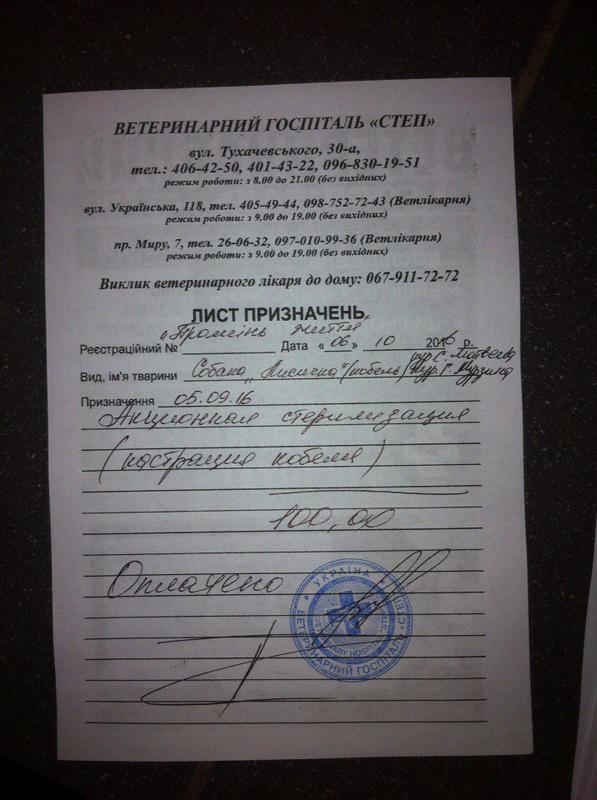 ВЕТЕРИНАРНИЙ ГОСПІТАЛЬ «СТЕП»
вул. Тухачевського, 30-а,
тел.: 406-42-50, 401-43-22, 096-830-19-51
режим роботи: з 8.00 до 21.00 (без вихідних)
вул. Українська, 118, тел. 405-49-44, 098-752-72-43 (Ветлікарня)
режим роботи: з 9.00 до 19.00 (без вихідних)
пр. Миру, 7, тел. 26-06-32, 097-010-99-36 (Ветлікарня)
режим роботи: з 9.00 до 19.00 (без вихідних)
Виклик ветеринарного лікаря до дому: 067-911-72-72
ЛИСТ ПРИЗНАЧЕНЬ
"Промінь життя"
Реєстраційний № Дата «06» 10 2016 р.
кур. С. Матвеева
Вид, ім'я тварини Собака "Лисичка" (кобель) кур. Г. Мурзина
Призначення 05.09.16
Акционная стерилизация
(кастрация кобеля)
100,00
Оплачено
УКРАЇНА
ВЕТЕРИНАРНИЙ ГОСПІТАЛЬ «СТЕП»
VETERINARY HOSPITAL